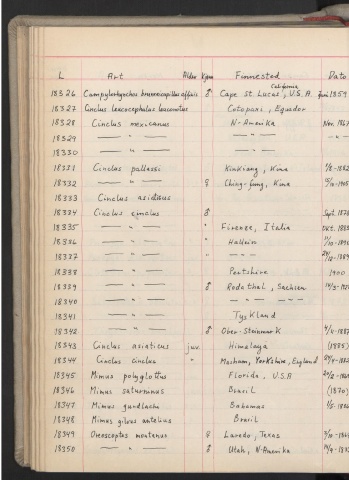 L Art Alder Kjønn Finnested Dato
California
18326 Campylorhynchus brunneicapillus affinis ♂ Cape St Lucas, U.S.A. Juni 1859
18327 Cinclus leucocephalus leuconotus Cotopaxi, Equador
18328 Cinclus mexicanus N-Amerika Nov. 1867
18329 — " — — " — "
18330 — " —
18331 Cinclus pallasi Kiukiang, Kina 1/8-1882
18332 — " — ♀ Ching-Fung, Kina
18333 Cinclus asiaticus
18334 Cinclus cinclus ♂ Sept. 1878
18335 — " — " Firenze, Italia Okt. 1883
18336 — " — " Hallein
18337 — " — " — " —
18338 — " — Pertshire 1900
18339 — " — ♂ Rodathal, Sachsen 14/3-
18340 — " — — " — — " —
18341 — " — Tyskland
18342 — " — ♂ Ober-Steinmark 4/4-1887
18343 Cinclus asiaticus juv. Himalaya (1885)
18344 Cinclus cinclus " Masham, Yorkshire, England
18345 Mimus polyglottus Florida, U.S.A
18346 Mimus saturninus Brasil (1870)
18347 Mimus gundlachi Bahamas 1/5-
18348 Mimus gilvus antelius Brasil
18349 Oreoscoptes montanus ♀ Laredo, Texas
18350 — " — ♂ Utah, N-Amerika